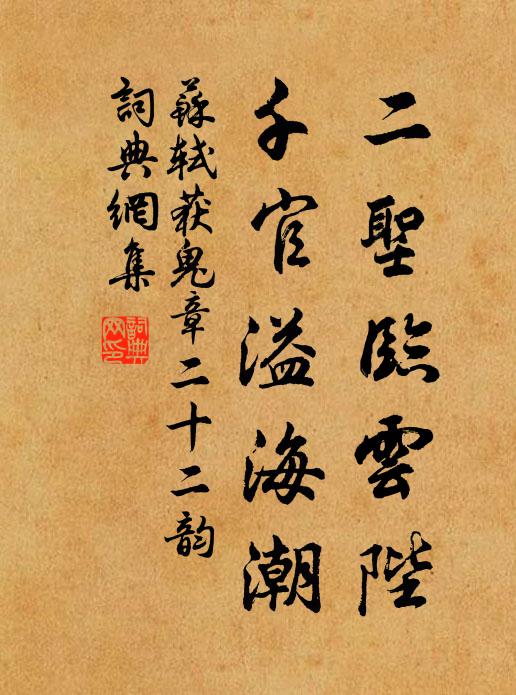 二聖臨雲陛
千官溢海潮
蘇軾获鬼章二十二韵
詞典網集
詞典
网印